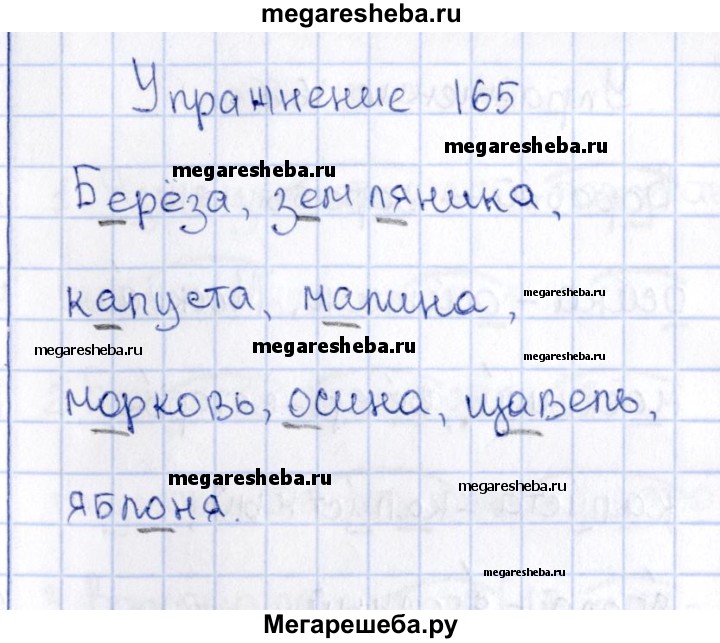 megaresheba.ru
Упражнение 165
megaresheba.ru
megaresheba.ru
Берёза, земляника,
капуста, малина,
megaresheba.ru
megaresheba.ru
megaresheba.ru
megaresheba.ru
морковь, осина, щавель,
megaresheba.ru
megaresheba.ru
яблоня.
megaresheba.ru
Мегарешеба.ру